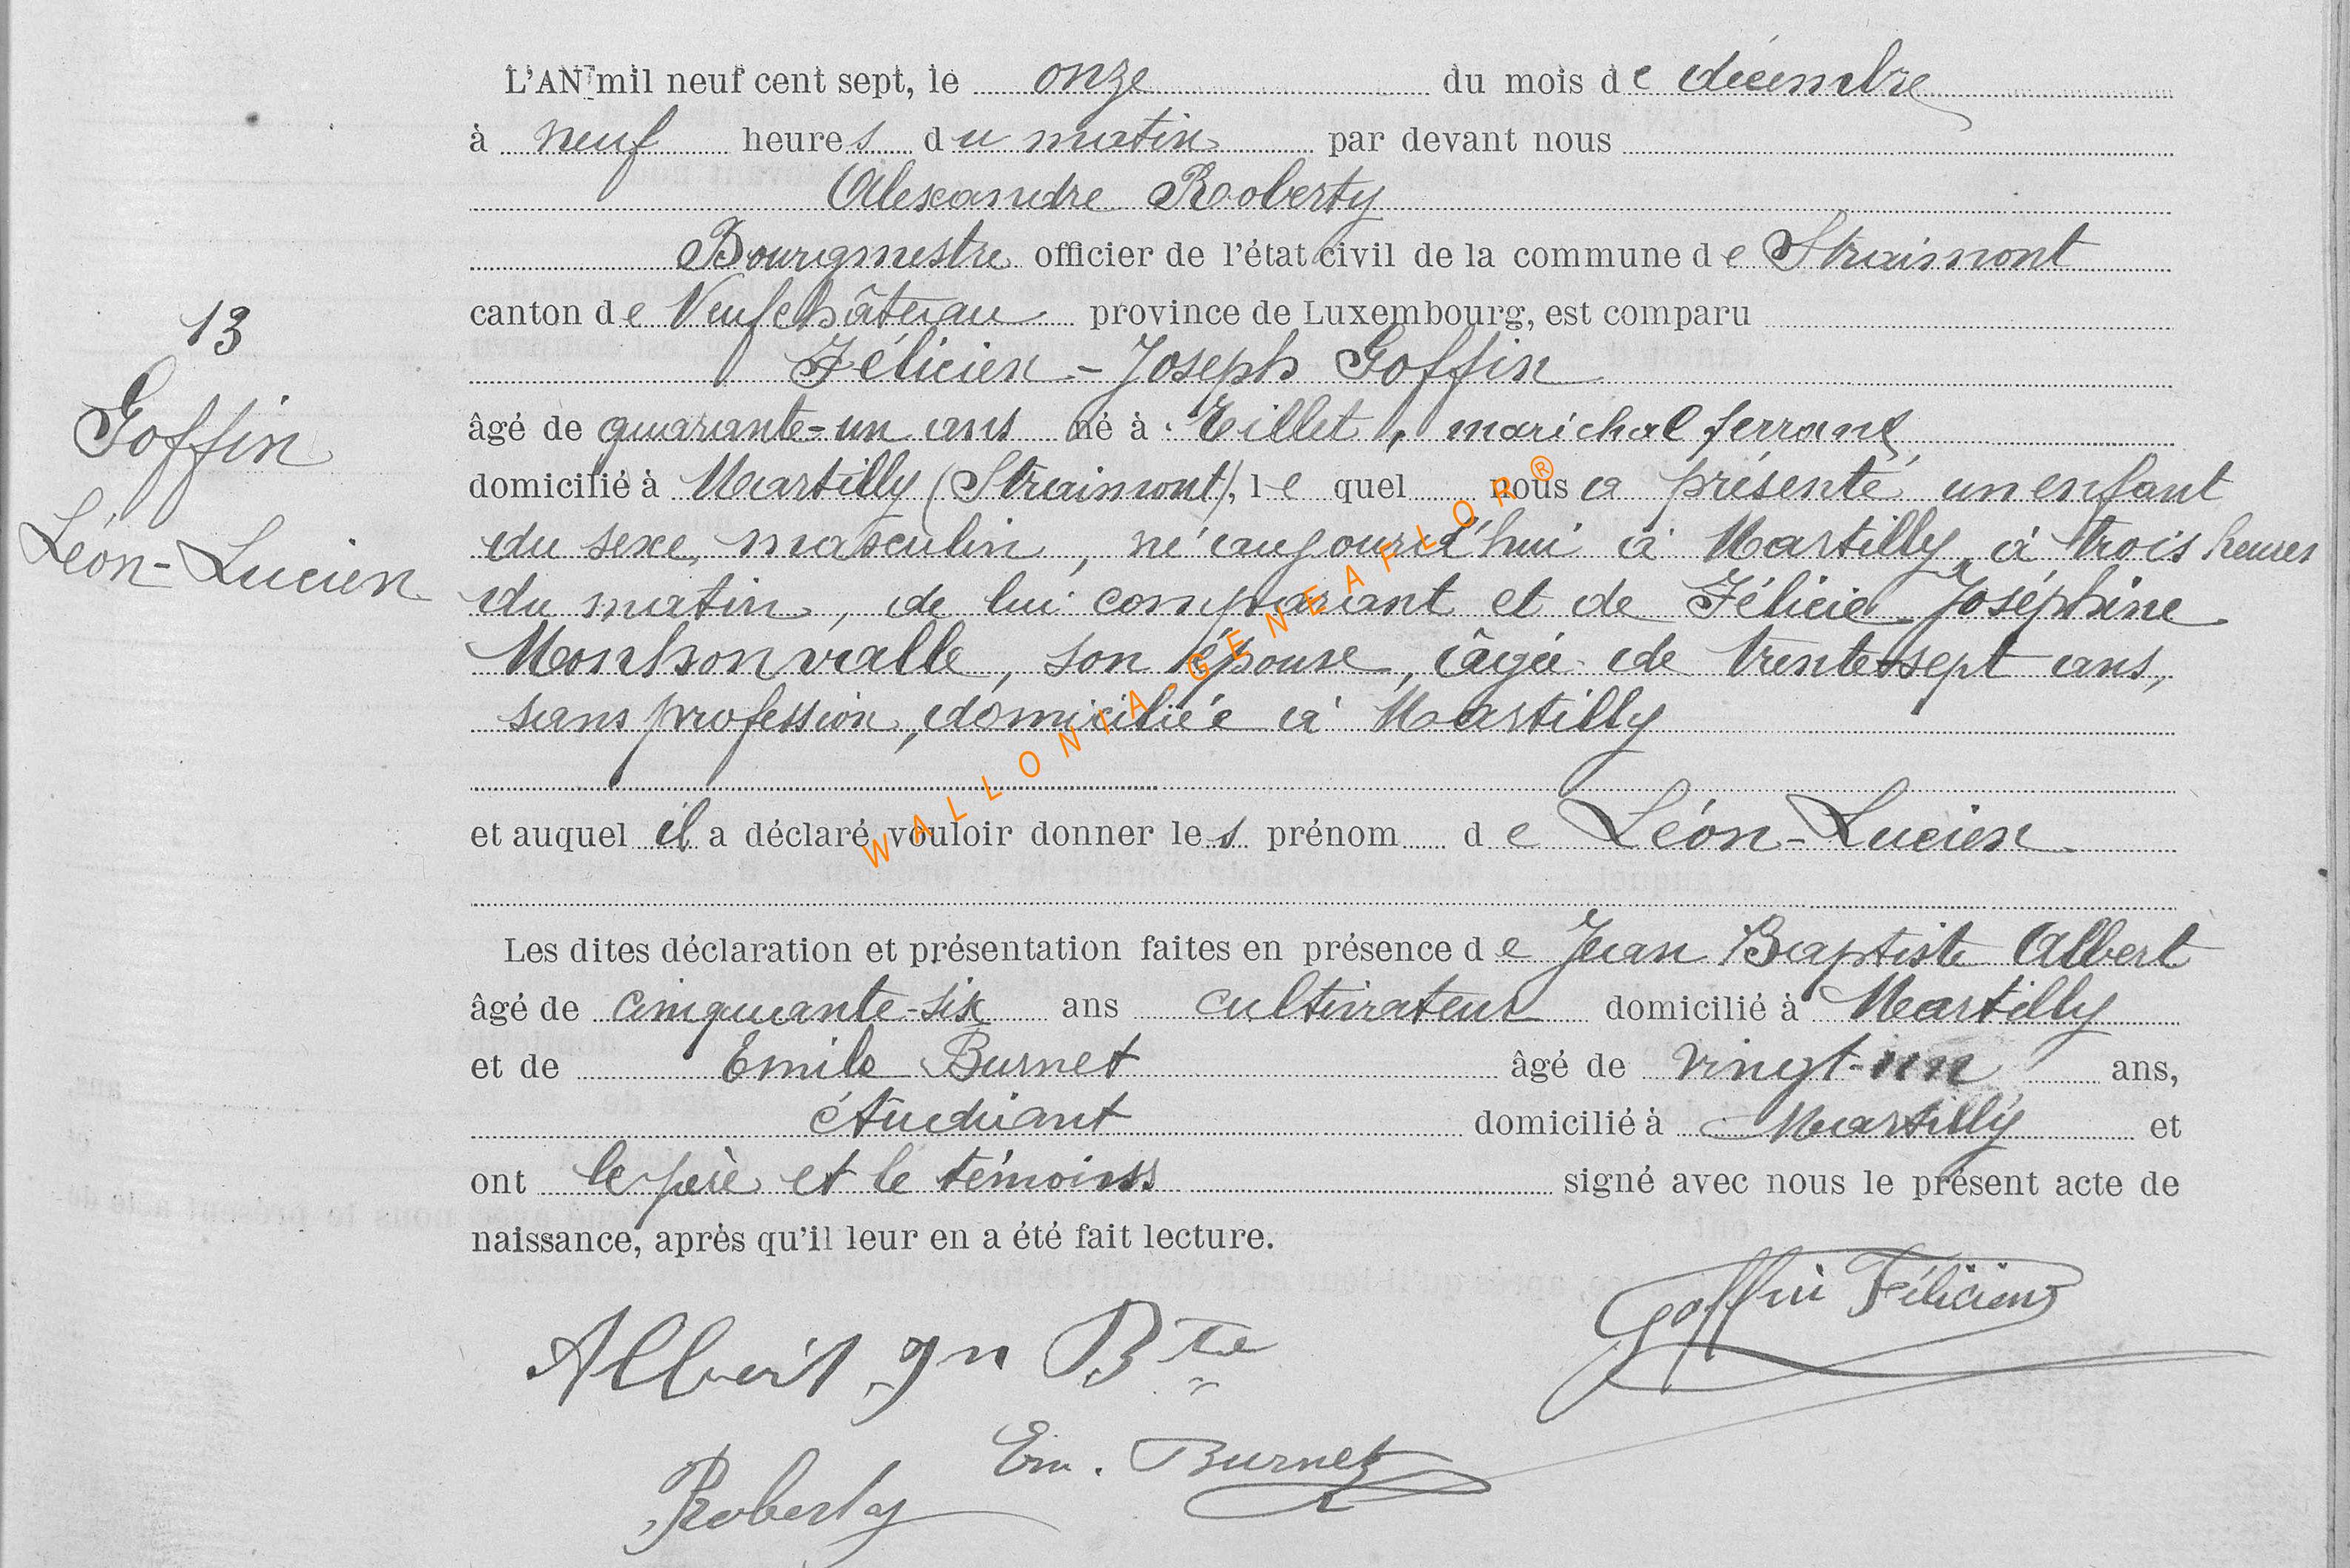 L'AN mil neuf cent sept, le onze du mois de décembre
à neuf heures du matin par devant nous
Alexandre Roberty
Bourgmestre officier de l'état civil de la commune de Straimont
canton de Neufchâteau province de Luxembourg, est comparu
Félicien-Joseph Goffin
âgé de quarante-un ans né à Tillet, marichal ferrant
domicilié à Martilly (Straimont), lequel nous a présenté un enfant
du sexe masculin, né aujourd'hui à Martilly, à trois heures
du matin, de lui comparant et de Félicie Joséphine
Monhonvalle, son épouse, âgée de trente-sept ans,
sans profession, domiciliée à Martilly
et auquel il a déclaré vouloir donner les prénom de Léon-Lucien
Les dites déclaration et présentation faites en présence de Jean Baptiste Albert
âgé de cinquante-six ans cultivateur domicilié à Martilly
et de Emile Burnet âgé de vingt-un ans,
étudiant domicilié à Martilly et
ont le père et le témoins signé avec nous le présent acte de
naissance, après qu'il leur en a été fait lecture.
13
Goffin
Léon-Lucien
WALLONIA-GENEAFLOR®
Goffin Félicien
Albert Jn Bte
Em. Burnet
Roberty